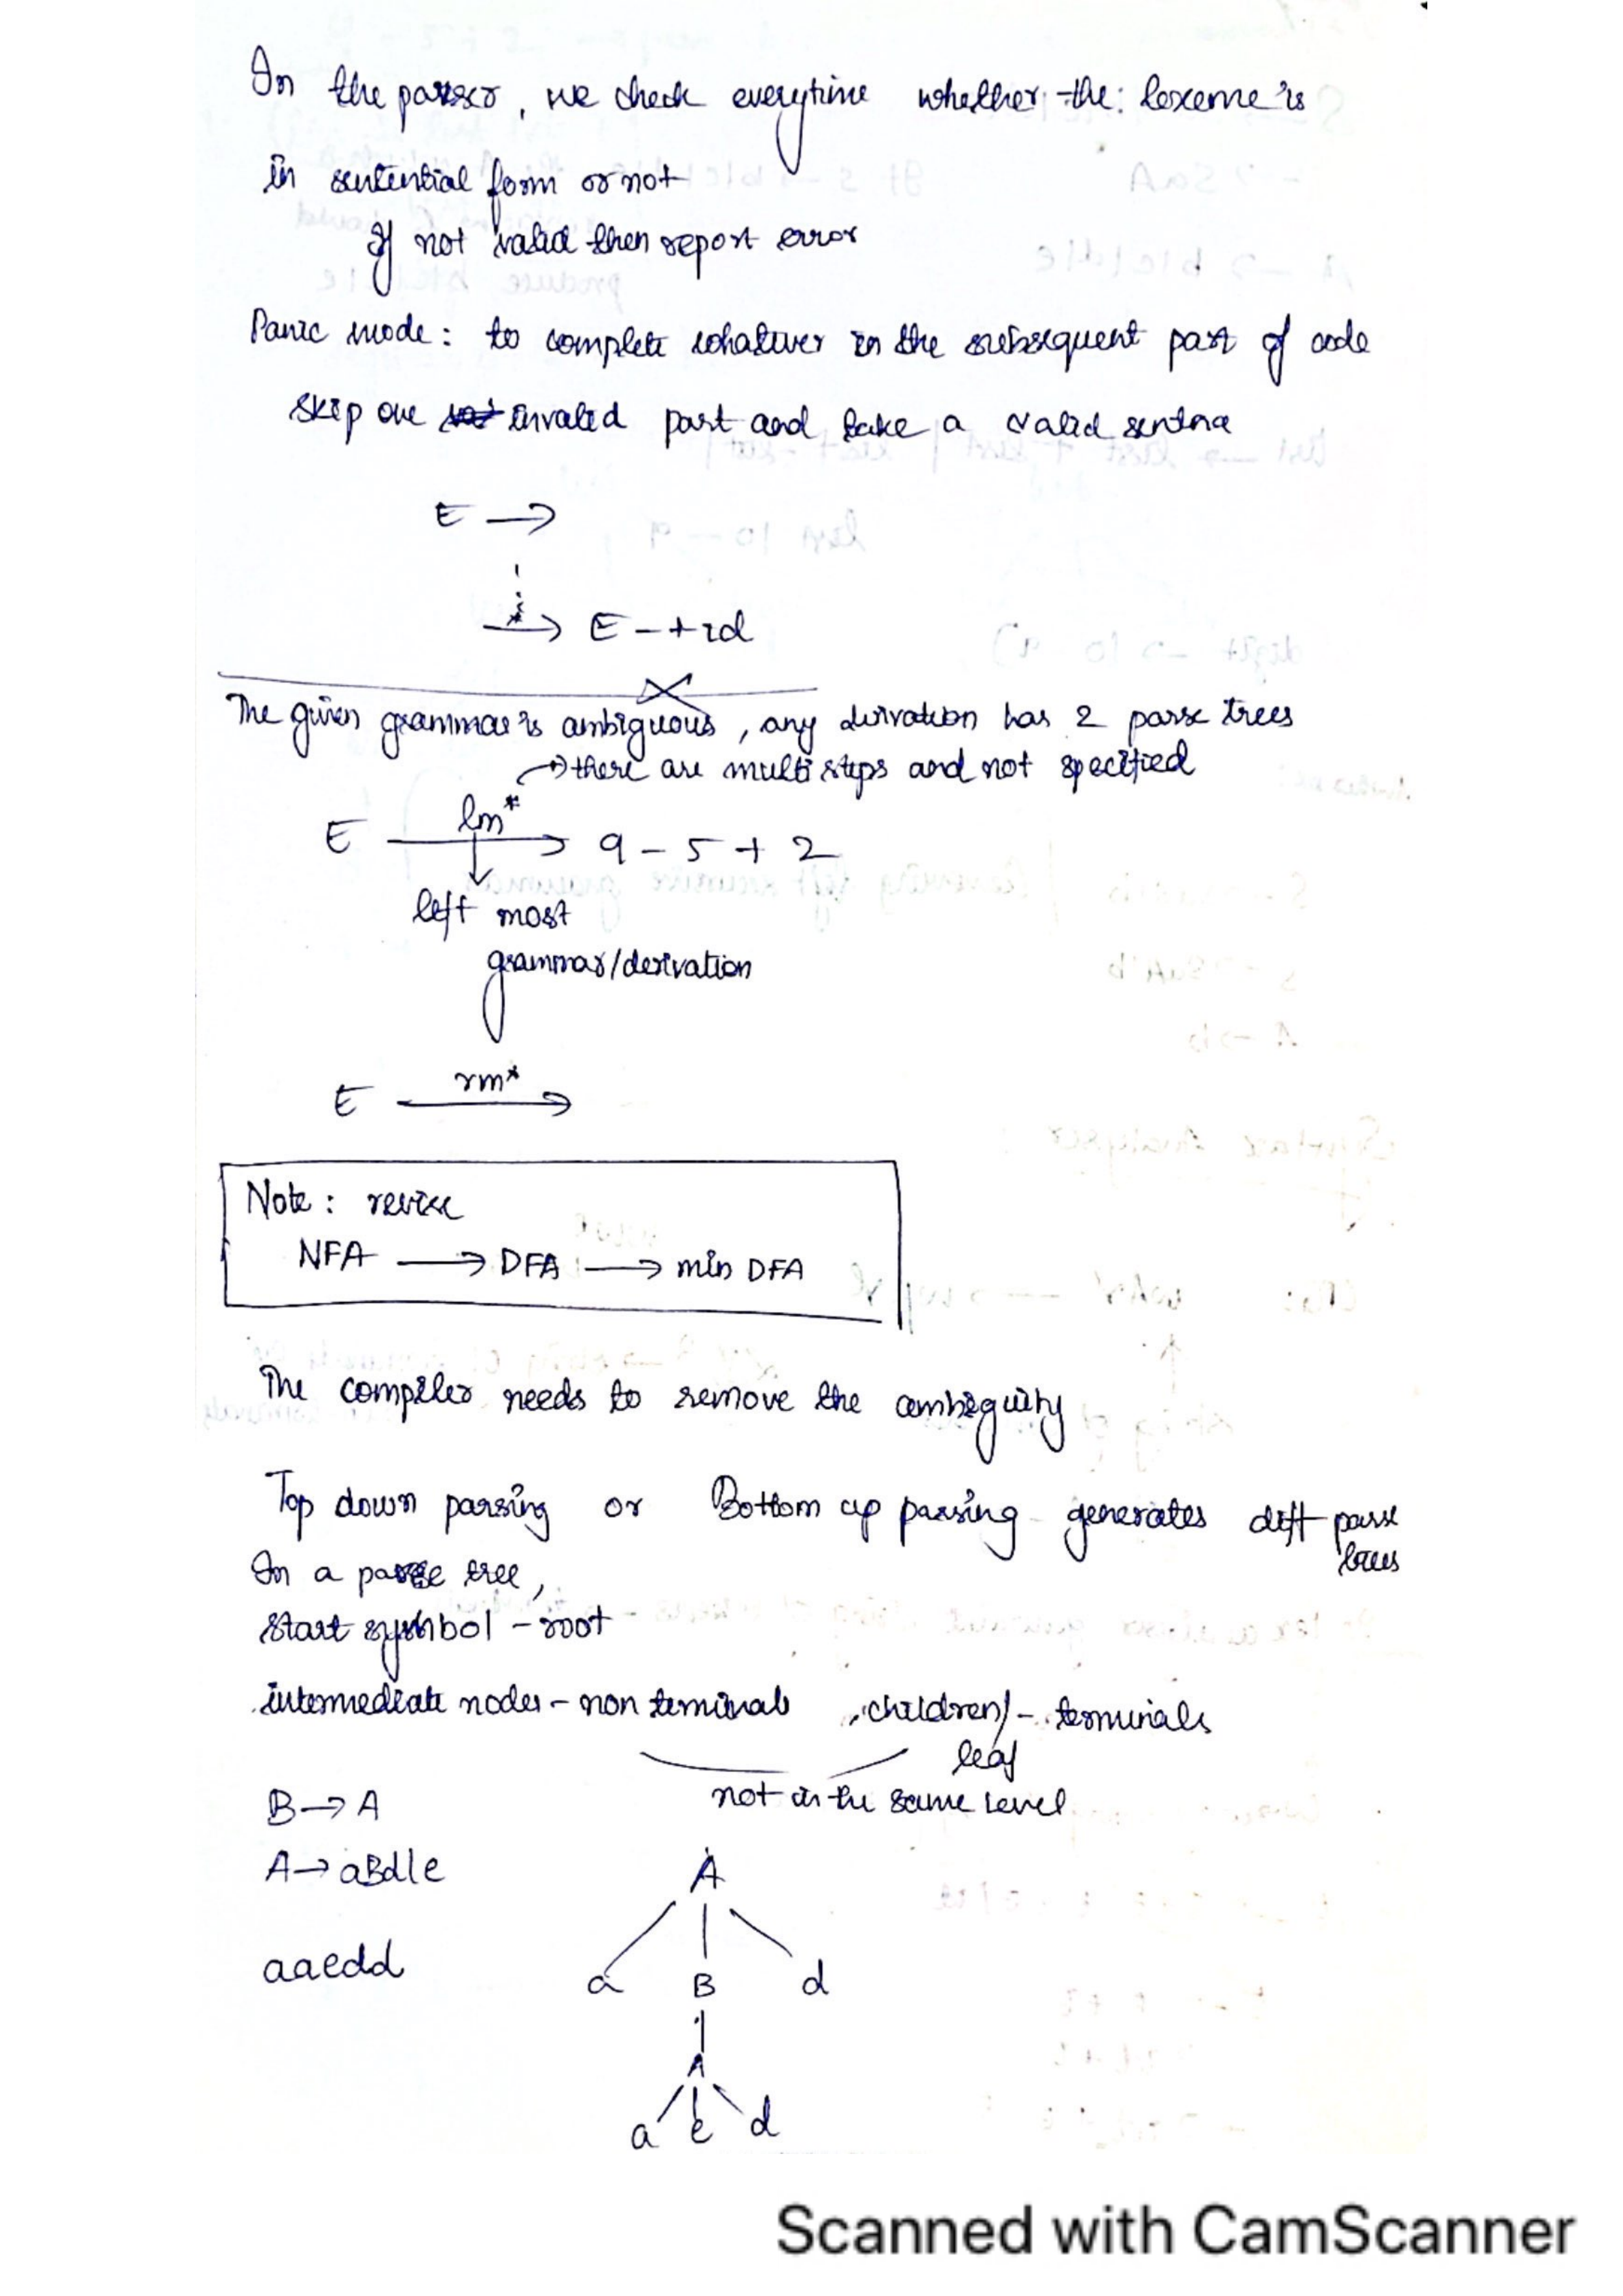 In the parser, we check everytime whether the: lexeme is
in sentential form or not
If not valid then report error
Panic mode: to complete whatever in the subsequent part of code
skip one invalid part and take a valid sentnce
E →
→ E-+id
The given grammar is ambiguous, any derivation has 2 parse trees
→ there are multi steps and not specified
E lm* → 9 - 5 + 2
left most
grammar/derivation
E rm* →
Note: revise
NFA → DFA → min DFA
The compiler needs to remove the ambiguity
Top down parsing or Bottom up parsing generates diff parse
trees
In a parse tree,
start symbol - root
intermediate nodes - non terminals , children/ - terminals
leaf
not in the same level
B → A
A → aBd|e
aaedd
A
a B d
A
a e d
Scanned with CamScanner